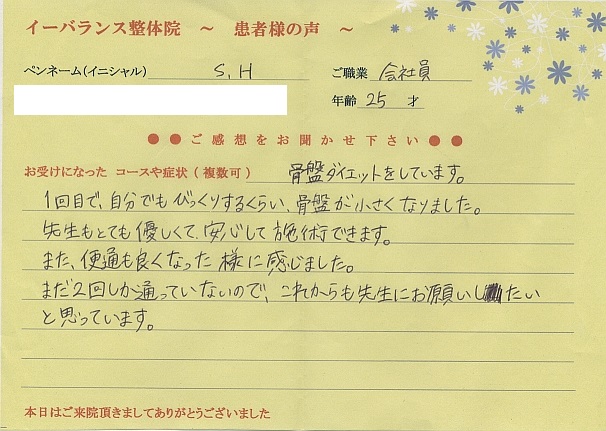 イーバランス整体院 ～ 患者様の声 ～
ペンネーム(イニシャル) S.H ご職業 会社員
年齢 25 才
●●ご感想をお聞かせ下さい●●
お受けになった コースや症状(複数可) 骨盤ダイエットをしています。
1回目で、自分でもびっくりするくらい、骨盤が小さくなりました。
先生もとても優しくて、安心して施術できます。
また、便通も良くなった様に感じました。
まだ2回しか通っていないので、これからも先生にお願いしたい
と思っています。
本日はご来院頂きましてありがとうございました